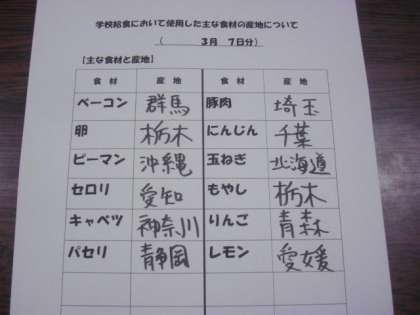 学校給食において使用した主な食材の産地について
( 3月 7日分)
【主な食材と産地】
食材 産地 食材 産地
ベーコン 群馬 豚肉 埼玉
卵 栃木 にんじん 千葉
ピーマン 沖縄 玉ねぎ 北海道
セロリ 愛知 もやし 栃木
キャベツ 神奈川 りんご 青森
パセリ 静岡 レモン 愛媛